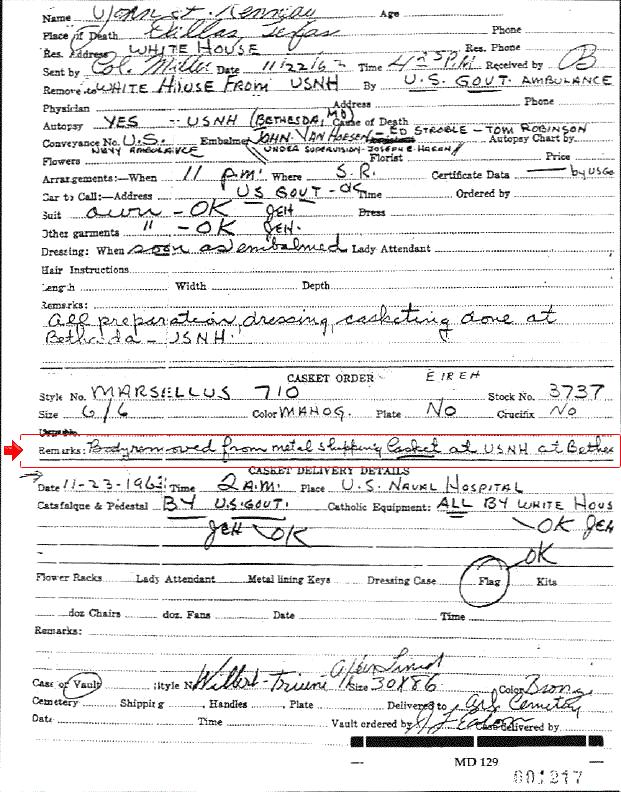 Name John F. Kennedy Age
Place of Death Dallas, Texas Phone
Res. Address WHITE HOUSE Res. Phone
Sent by Col. Miller Date 11/22/63 Time 4:25 P.M. Received by B
Remove to WHITE HOUSE FROM USNH By U.S. GOVT. AMBULANCE
Physician Address Phone
Autopsy YES - USNH (BETHESDA, MD) Cause of Death
Conveyance No. U.S. Embalmer JOHN VAN HOESEN - ED STROBLE - TOM ROBINSON Autopsy Chart by
NAVY AMBULANCE UNDER SUPERVISION - JOSEPH E. HAGAN
Flowers Florist Price
Arrangements:—When 11 P.M. Where S.R. Certificate Data by USGo
Car to Call:—Address US GOUT - OK Time Ordered by
Suit own - OK JEH Press
Other garments " - OK JEH.
Dressing: When soon as embalmed Lady Attendant
Hair Instructions
Length Width Depth
Remarks:
All preparation, dressing, casketing done at
Bethesda - USNH.
CASKET ORDER EIREH
Style No. MARSELLUS 710 Stock No. 3737
Size 6/6 Color MAHOG. Plate NO Crucifix NO
Remarks: Body removed from metal shipping Casket at USNH at Bethes
CASKET DELIVERY DETAILS
Date 11-23-1963 Time 2 A.M. Place U.S. NAVAL HOSPITAL
Catafalque & Pedestal BY U.S. GOUT. Catholic Equipment: ALL BY WHITE HOUS
JEH OK OK JEH
OK
Flower Racks Lady Attendant Metal lining Keys Dressing Case Flag Kits
doz Chairs doz. Fans Date Time
Remarks:
Case or Vault Style N Wilbert Triune Size 30X86 Color Bronz
Cemetery Shipping , Handles , Plate Delivered to Arl Cemetery
Date Time Vault ordered by Case delivered by
MD 129
001217